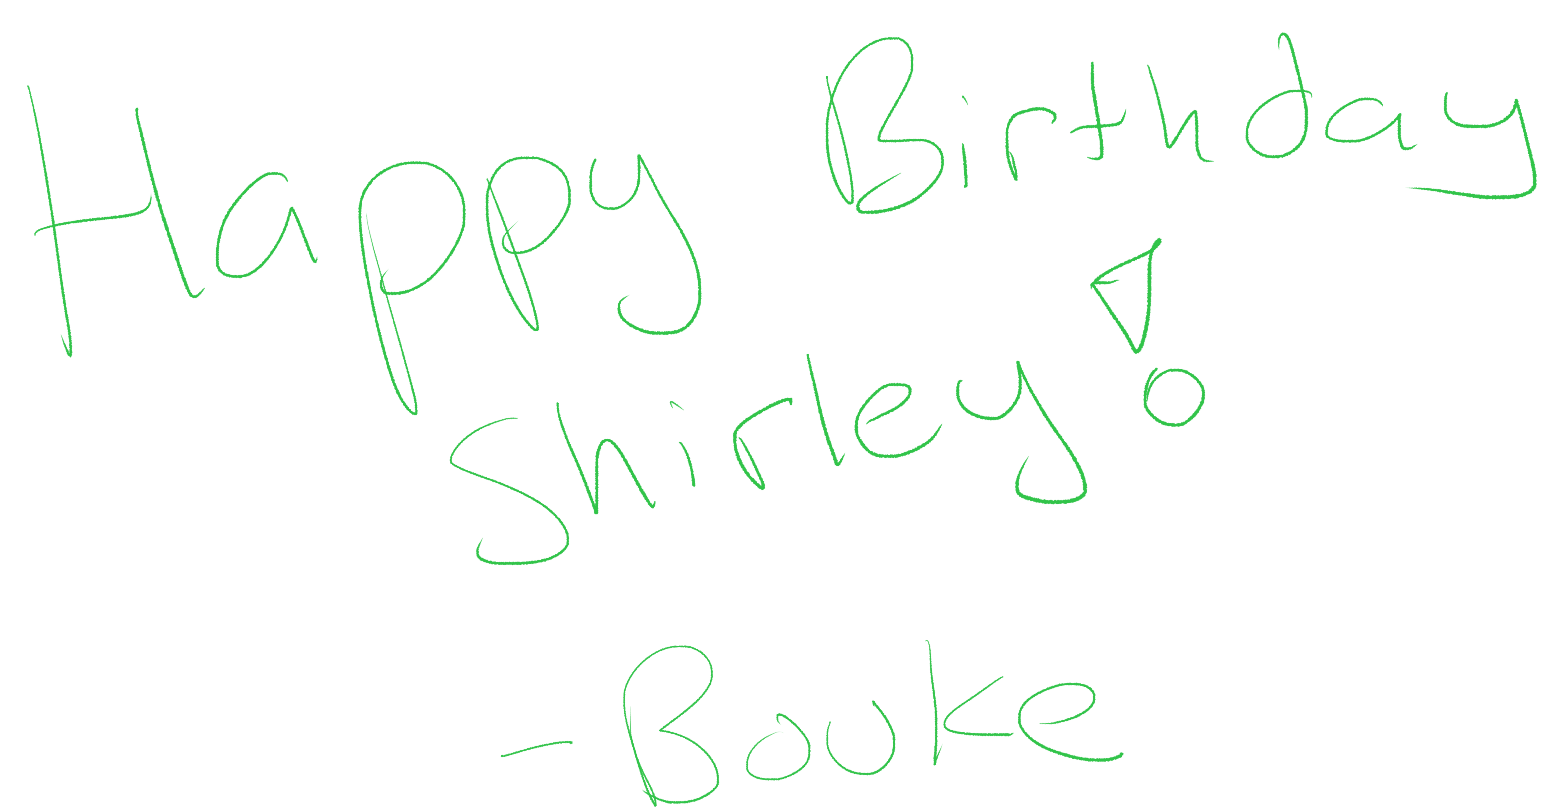 Happy Birthday
Shirley!
- Bouke